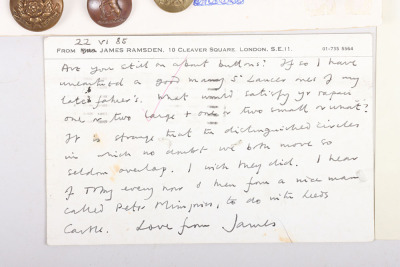 22 VI 86
FROM JAMES RAMSDEN, 10 CLEAVER SQUARE, LONDON, S.E.11. 01-735 5564
Are you still on about buttons? If so I have
unearthed a good many 5th Lancer ones of my
late father's. What would satisfy yr
one or two large + one or two small or what?
It is strange that the distinguished circles
in which no doubt we both move so
seldom overlap. I wish they did. I hear
of Toby every now & then from a nice man
called Peter to do with Leeds
Castle. Love from James